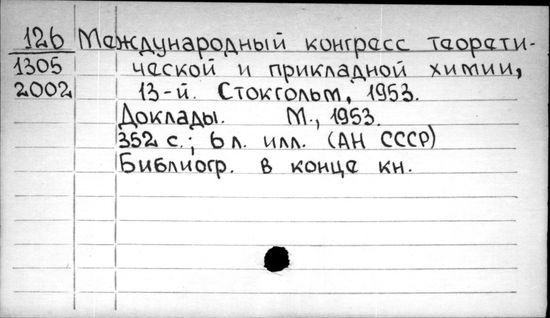 126 Международный конгресс теорети-
1305 ческой и прикладной химии,
2002 13-й. Стокгольм, 1953.
Доклады. М., 1953.
352 с.; 6 л. илл. (АН СССР)
Библиогр. в конце кн.